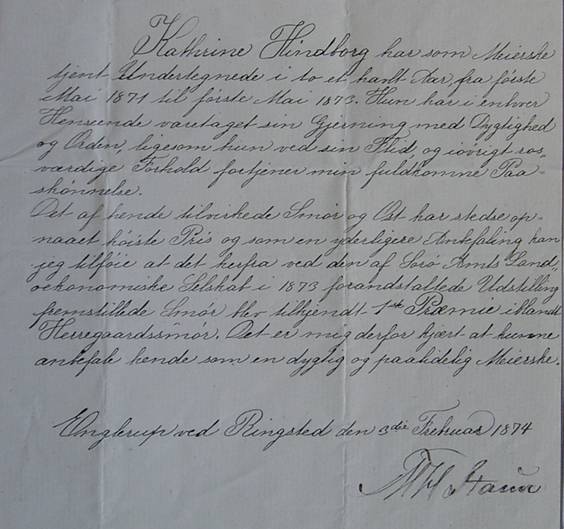 Kathrine Hindborg har som Meierske
tjent Undertegnede i to et halvt Aar fra første
Mai 1871 til første Mai 1873. Hun har i enhver
Henseende varetaget sin Gjerning med Dygtighed
og Orden, ligesom hun ved sin Flid og iøvrigt ros-
værdige Forhold fortjener min fuldkomne Paa-
skønnelse.
Det af hende tilvirkede Smør og Ost har stedse op-
naaet høieste Pris og som en yderligere Anbefaling kan
jeg tilføie at det herfra ved den af Sorø Amts Land-
oekonomiske Selskab i 1873 foranstaltede Udstilling
fremstillede Smør blev tilkjendt 1ste Præmie iblandt
Herregaardssmør. Det er mig derfor kjært at kunne
anbefale hende som en dygtig og paalidelig Meierske.
Englerup ved Ringsted den 3die Februar 1874